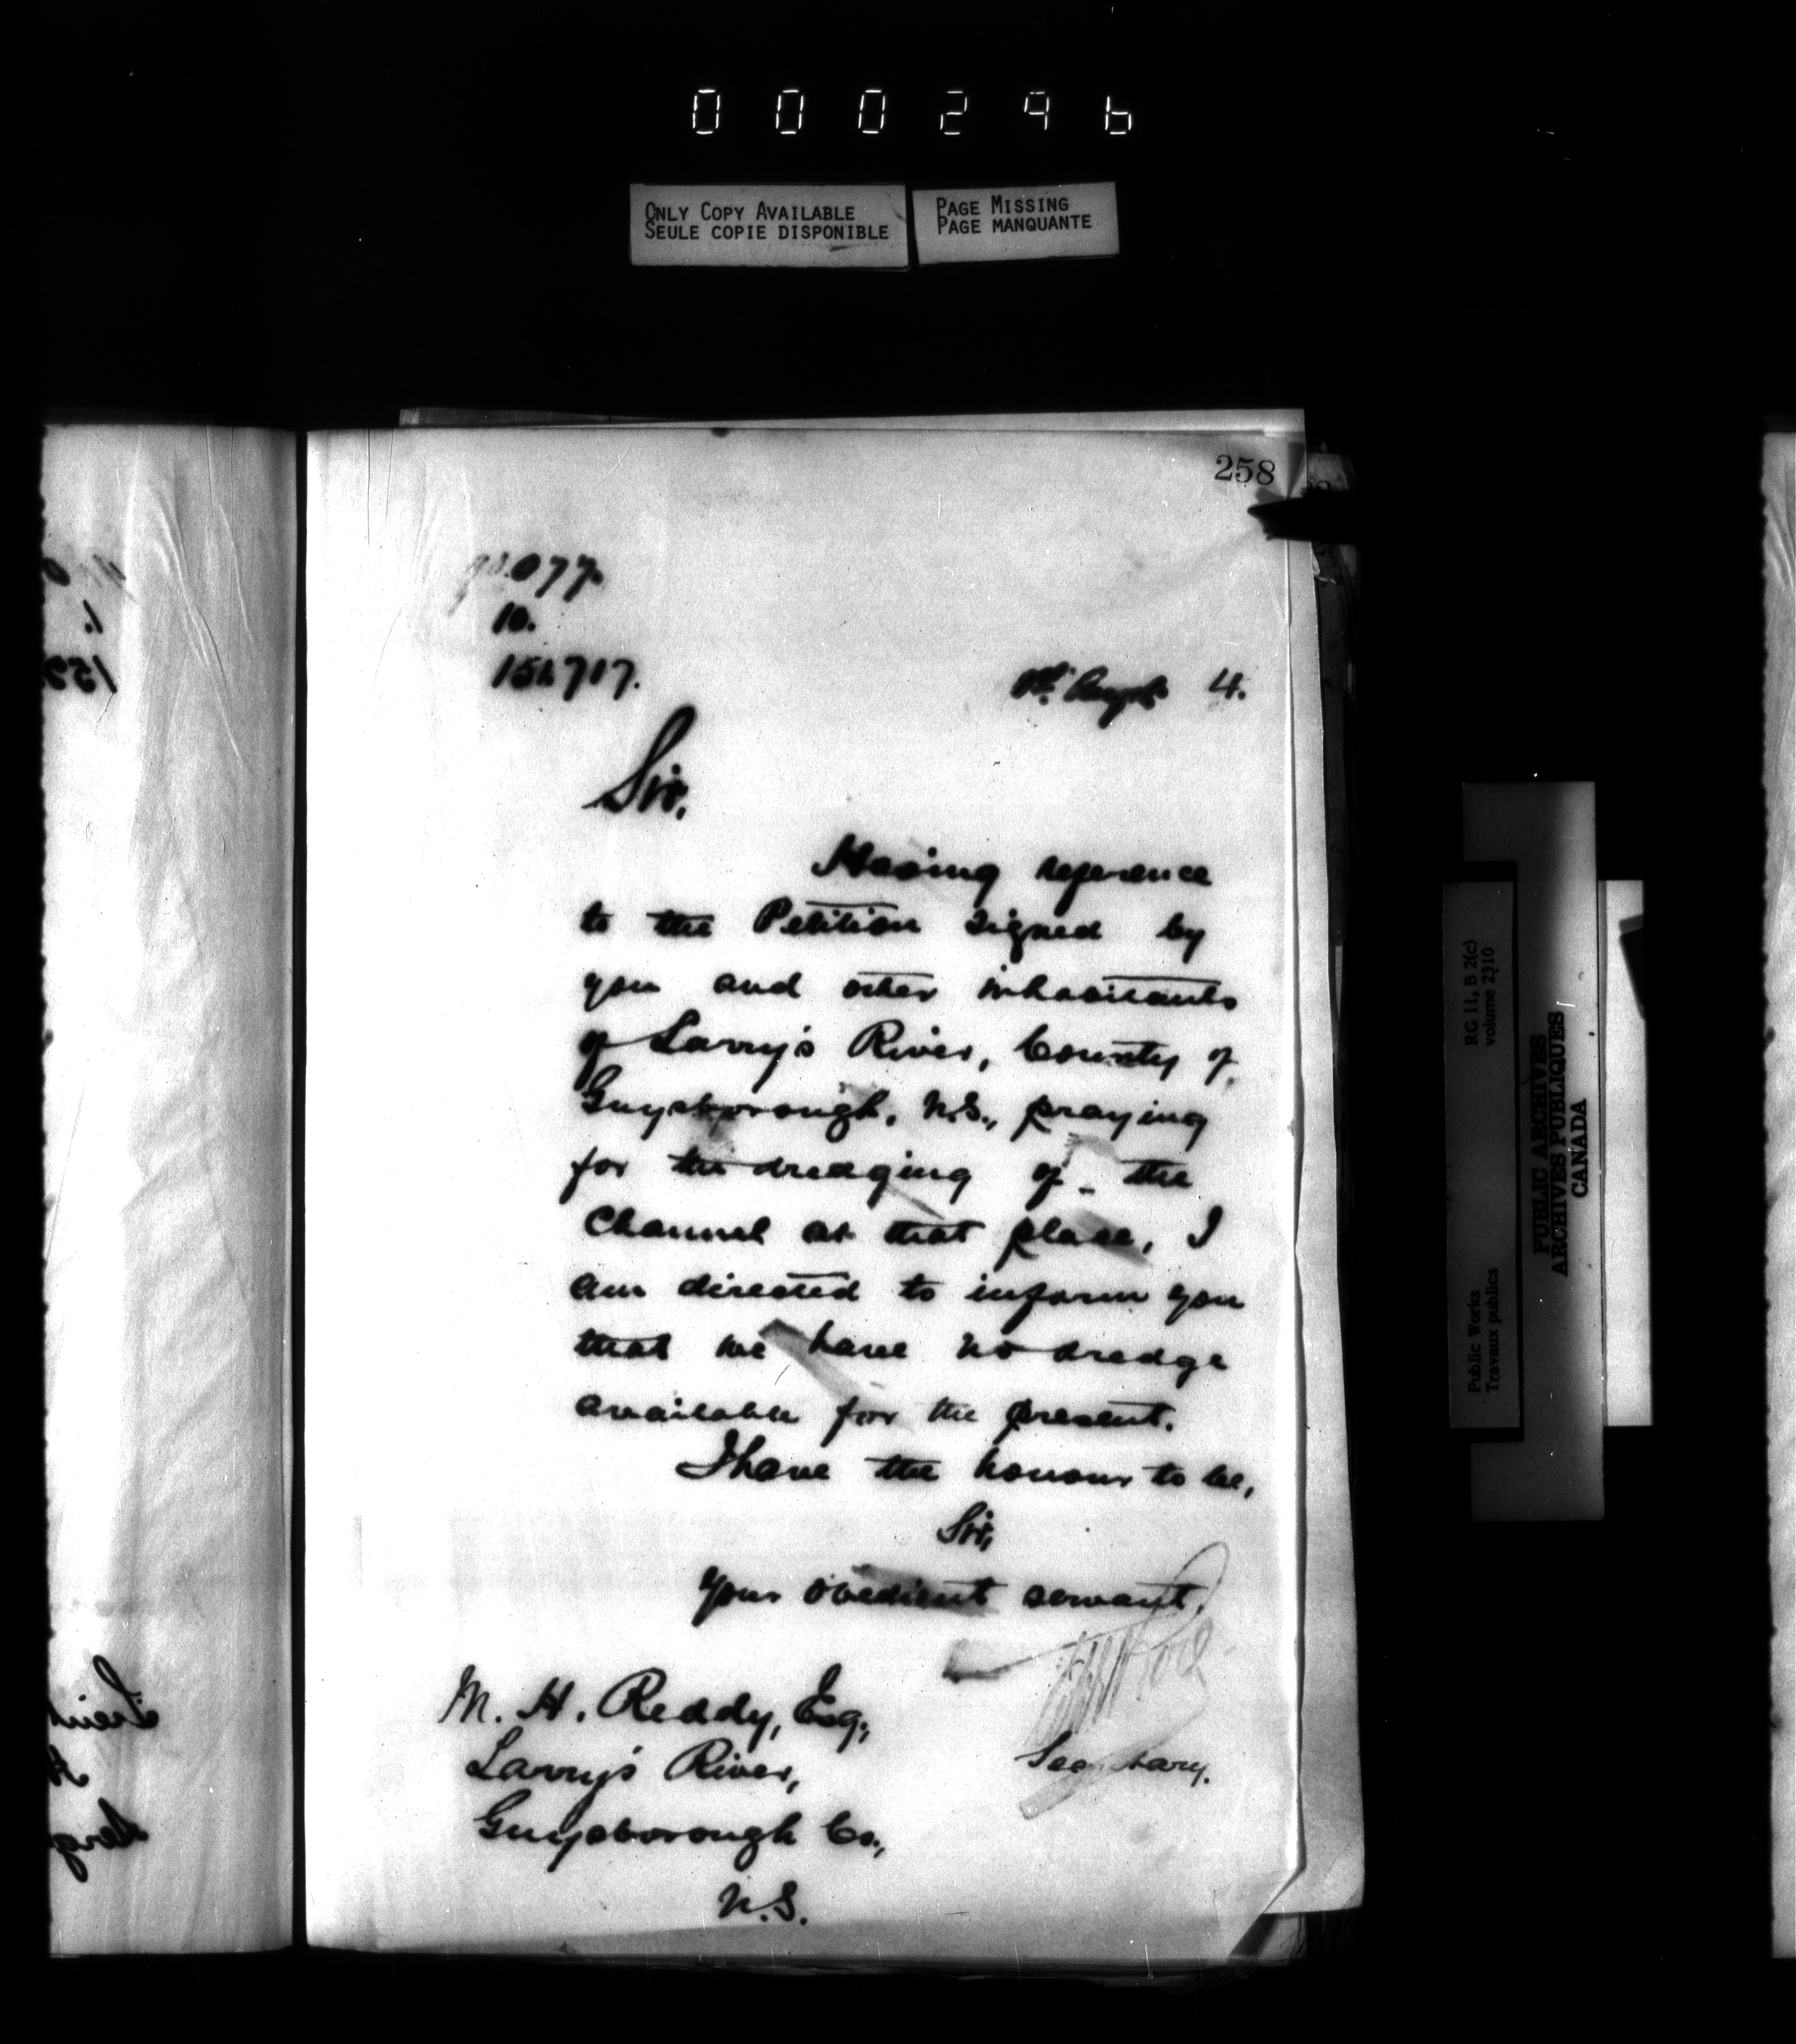 000296
ONLY COPY AVAILABLE
SEULE COPIE DISPONIBLE
PAGE MISSING
PAGE MANQUANTE
258
077.
10.
4.
Sir,
Having reference
to the Petition signed by
you and other inhabitants
of Larry's River, County of
Guysborough, N.S., praying
for the dredging of the
Channel at that place, I
am directed to inform you
that we have no dredge
available for the present.
I have the honour to be,
Sir,
Your obedient servant,
Secretary.
M. H. Reddy, Esq.,
Larry's River,
Guysborough Co.,
N.S.
RG 11, B 2(c)
volume 2310
Public Works
Travaux publics
PUBLIC ARCHIVES
ARCHIVES PUBLIQUES
CANADA